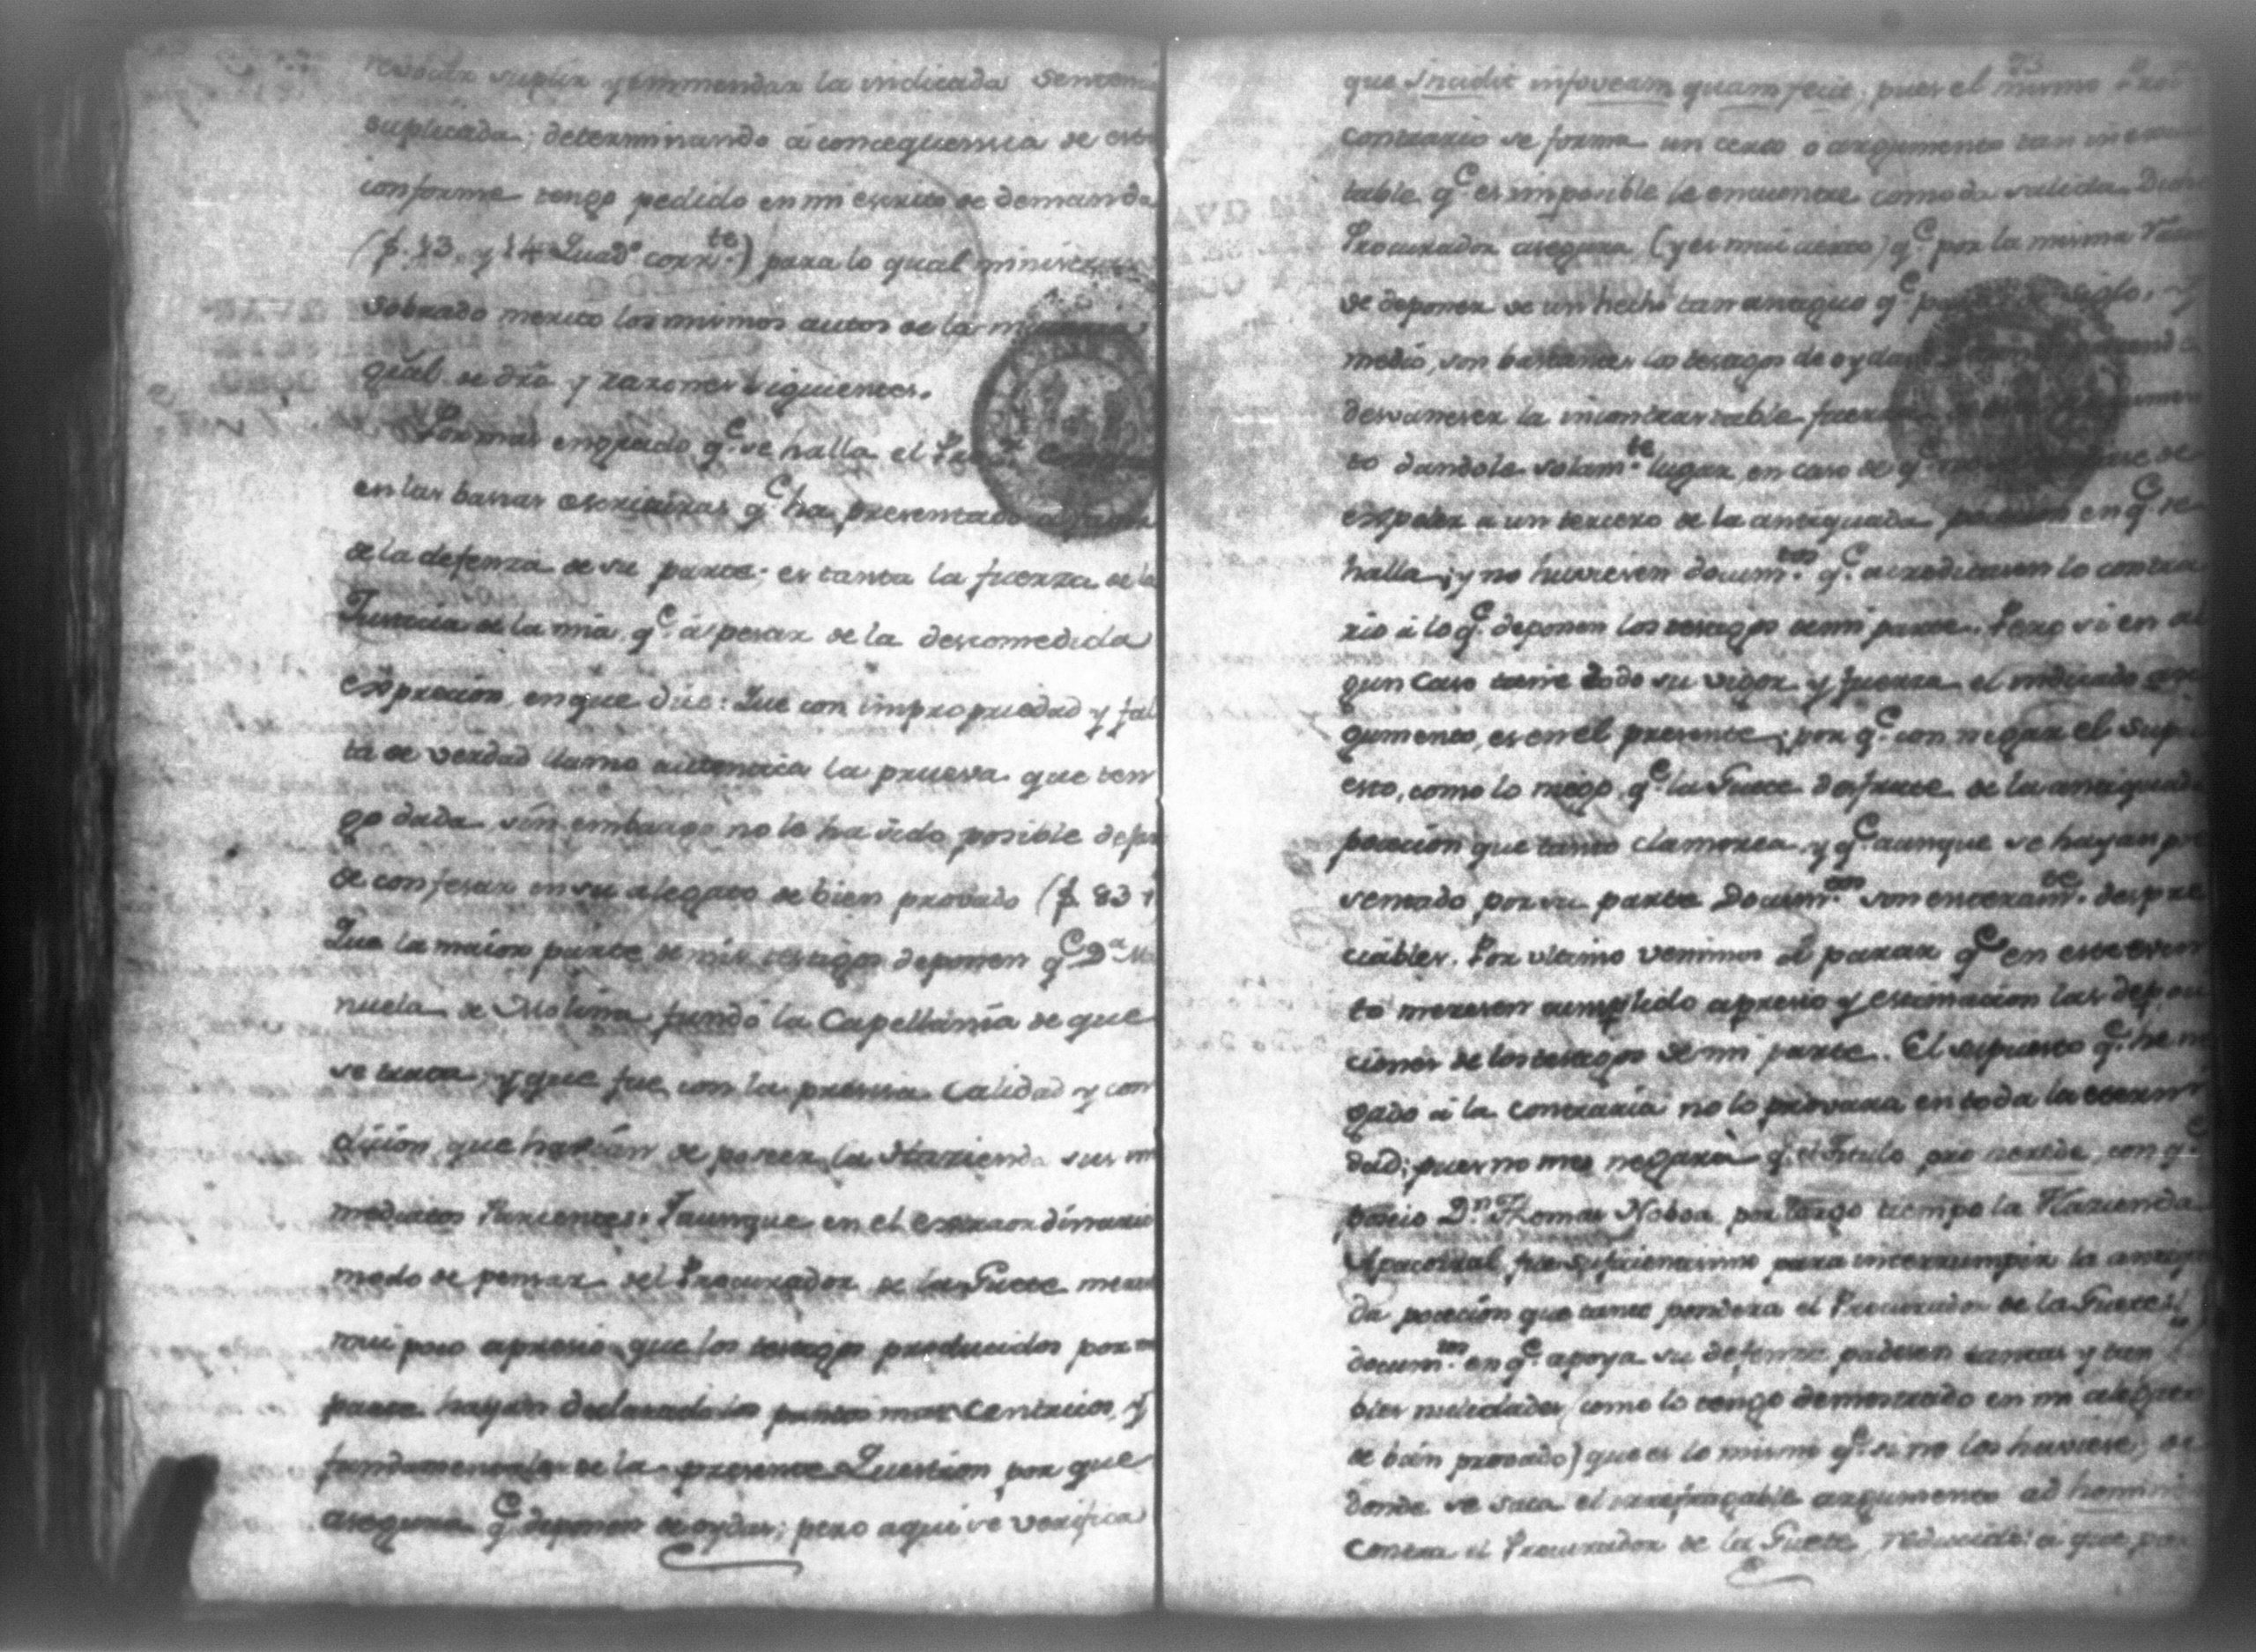 revocar suplir y emmendar la indicada Senten
suplicada; determinando á consequencia de esto
conforme tengo pedido en mi escrito de demanda
(f. 13. y 14 Quadº corrte.) para lo qual ministran
sobrado merito los mismos autos de la
qual de dro y razones siguientes.
Por mas engreido qe. se halla el
en las barras escrituras qe. ha presentado
de la defenza de su parte; es tanta la fuerza de la
Justicia de la mia, qe. á pesar de la descomedida
exprecion, en que dice: Que con impropriedad y fal
ta de verdad llamo autentica la prueva que ten
go dada, sin embargo no le ha sido posible dejar
de confesar en su alegato de bien provado (f 83
Que la maior parte de mis testigos deponen qe. Da. Ma
nuela de Molina fundó la Capellania de que
se trata; y que fue con la precisa calidad y con
dicion, que havian de poseer la Hazienda sus in
mediatos Parientes. Y aunque en el extraordinario
modo de pensar del Procurador de la Fuete meres
mui poco apresio que los testigos producidos por mi
parte hayan declarado los puntos mas centricos, y
fundamentales de la presente Question por que
asegura qe. deponen de oydas; pero aqui se verifica
73
que incidit in foveam quam fecit, pues el mismo Prot
contrario se forma un cerco o argumento tan inexcu
table qe. es imposible le encuentre comoda salida. Dicho
Procurador asegura (y es mui cierto) qe. por la misma
de deponer de un hecho tan antiguo qe. siglo, y
medio, son bastantes los testigos de oydas
desvanecer la incontrastable fuerza
to dandole solamte. lugar, en caso de qe. de
expeler a un tercero de la antiquada en qe. se
halla; y no huviesen documtos. qe. acreditasen lo contra
rio á lo qe. deponen los testigos de mi parte. Pero si en al
gun caso tiene todo su vigor y fuerza el indicado ar
gumento, es en el presente; por qe. con negar el supu
esto, como lo niego, qe. la Fuete disfrute de la antiquada
pocecion que tanto clamorea, y qe. aunque se hayan pre
sentado por su parte Documtos. son enteramte. despre
ciables. Por ultimo venimos á parar qe. en este even
to meresen cumplido apresio y estimacion las deposi
ciones de los testigos de mi parte. El supuesto qe. he ne
gado á la contraria no lo provara en toda la eterni
dad; pues no me negará qe. el Titulo pro herede, con qe.
poseio Dn. Thomas Noboa por largo tiempo la Hazienda
fue suficientisimo para interrumpir la antiqu
da pocecion que tanto pondera el Procurador de la Fuete; lo
documtos. en qe. apoya su defenza padesen tantas y tan
bles nulidades (como lo tengo demostrado en mi alegato
de bien provado) que es lo mismo qe. si no los huviese; de
donde se saca el irrefragable argumento ad homini
contra el Procurador de la Fuete, reducido: á que, po